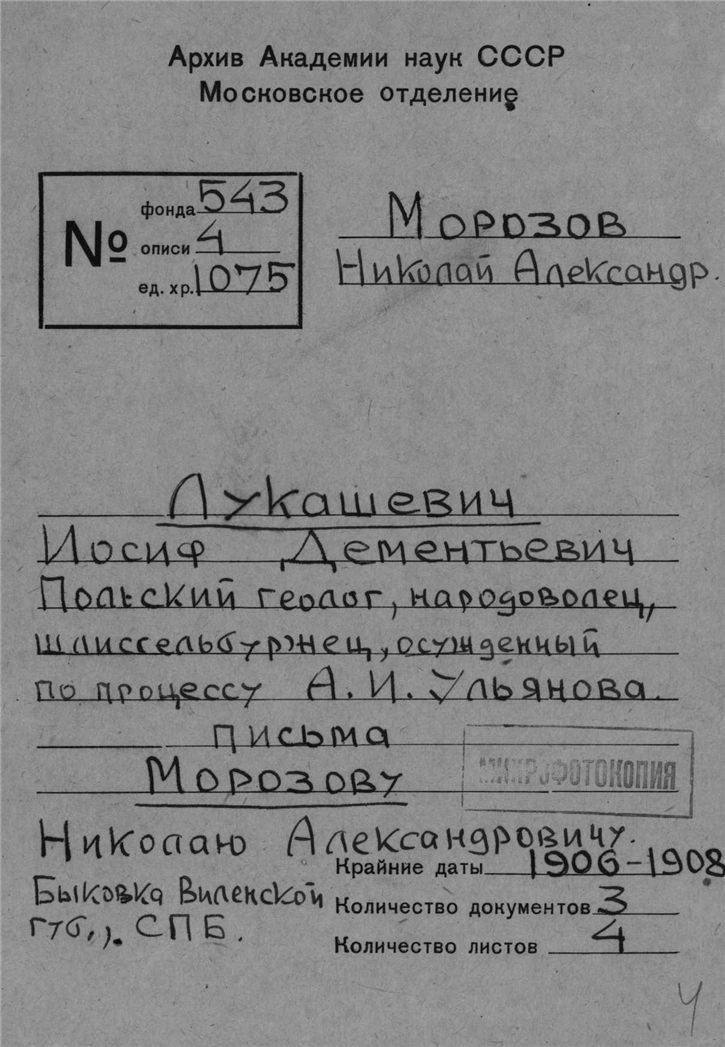 Архив Академии наук СССР
Московское отделение
№
фонда 543
описи 4
ед. хр. 1075
Морозов
Николай Александр.
Лукашевич
Иосиф Дементьевич
Польский геолог, народоволец,
шлиссельбуржец, осужденный
по процессу А. И. Ульянова.
письма
Морозову
МИКРОФОТОКОПИЯ
Николаю Александровичу.
Крайние даты 1906-1908
Быковка Виленской
губ., СПБ.
Количество документов 3
Количество листов 4
4